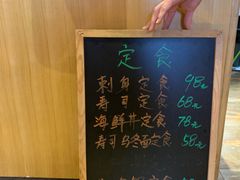 定食
刺身定食 98元
寿司定食 68元
海鲜丼定食 78元
寿司乌冬面定食 58元